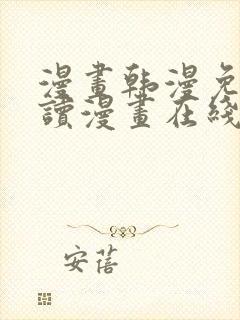 漫畫韩漫免
讀漫畫在綫
安蓓